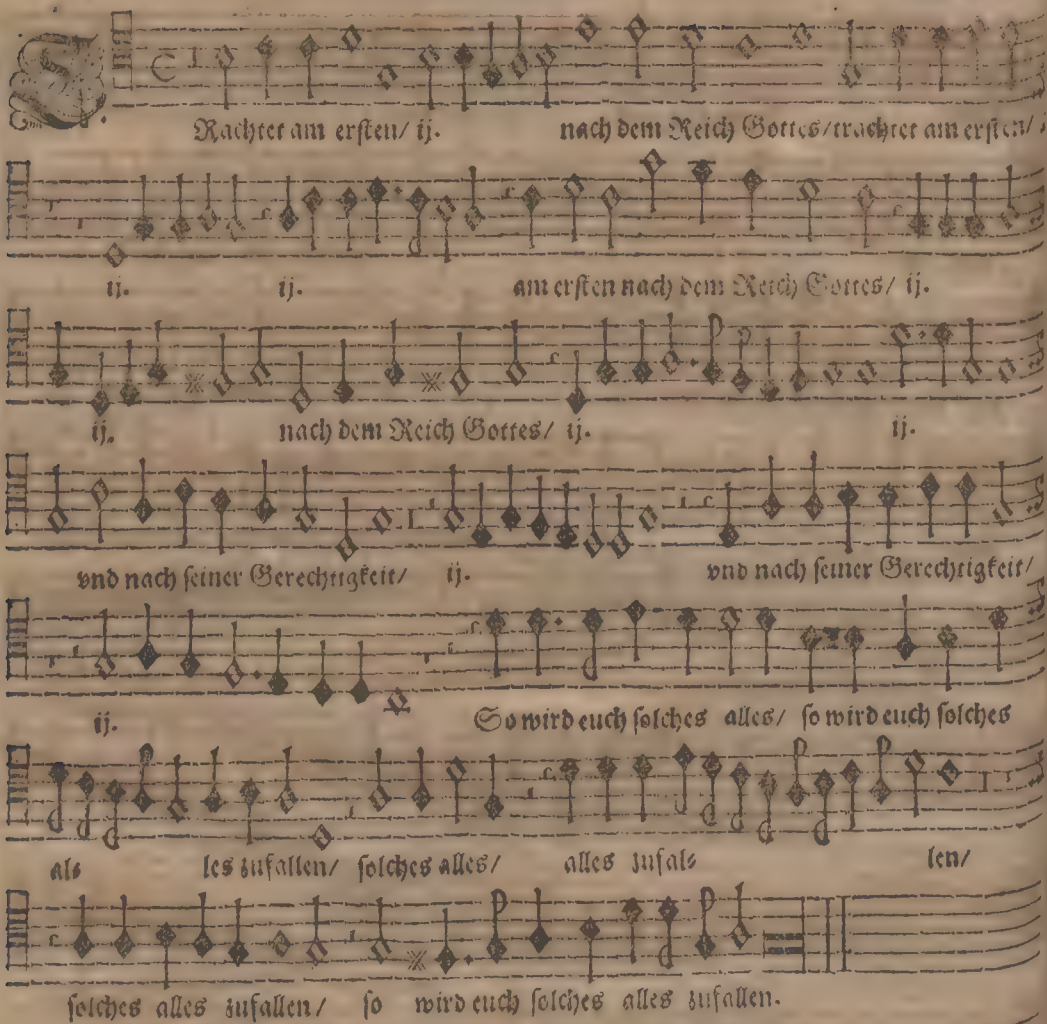 TRachtet am ersten/ ij. nach dem Reich Gottes/ trachtet am ersten/
ij. ij. am ersten nach dem Reich Gottes/ ij.
ij. nach dem Reich Gottes/ ij. ij.
vnd nach seiner Gerechtigkeit/ ij. vnd nach seiner Gerechtigkeit/
ij. So wird euch solches alles/ so wird euch solches
al⸗ les zufallen/ solches alles/ alles zufal⸗ len/
solches alles zufallen/ so wird euch solches alles zufallen.